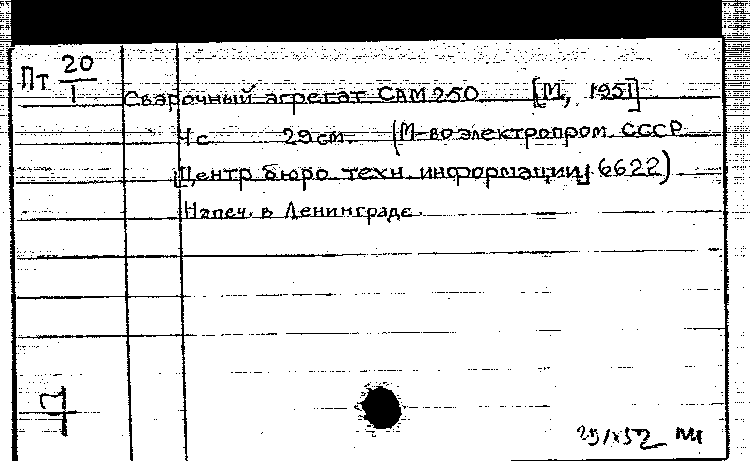 Пт 20/1
Сварочный агрегат САМ 250 [М, 1951]
4 с 29 см. (М-во электропром. СССР
Центр бюро техн. информации, 6622)
Напеч. в Ленинграде.
П
29/IX 52